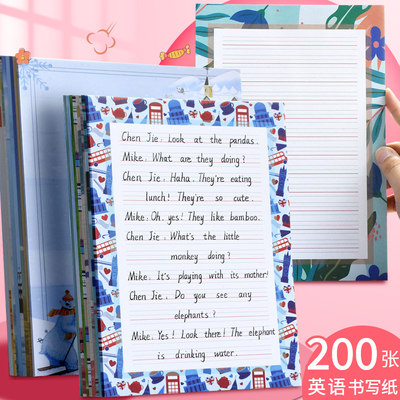 Chen Jie: Look at the pandas.
Mike: What are they doing?
Chen Jie: Haha. They're eating
lunch! They're so cute.
Mike: Oh, yes! They like bamboo.
Chen Jie: What's the little
monkey doing?
Mike: It's playing with its mother!
Chen Jie: Do you see any
elephants?
Mike: Yes! Look there! The elephant
is drinking water.
200张
英语书写纸